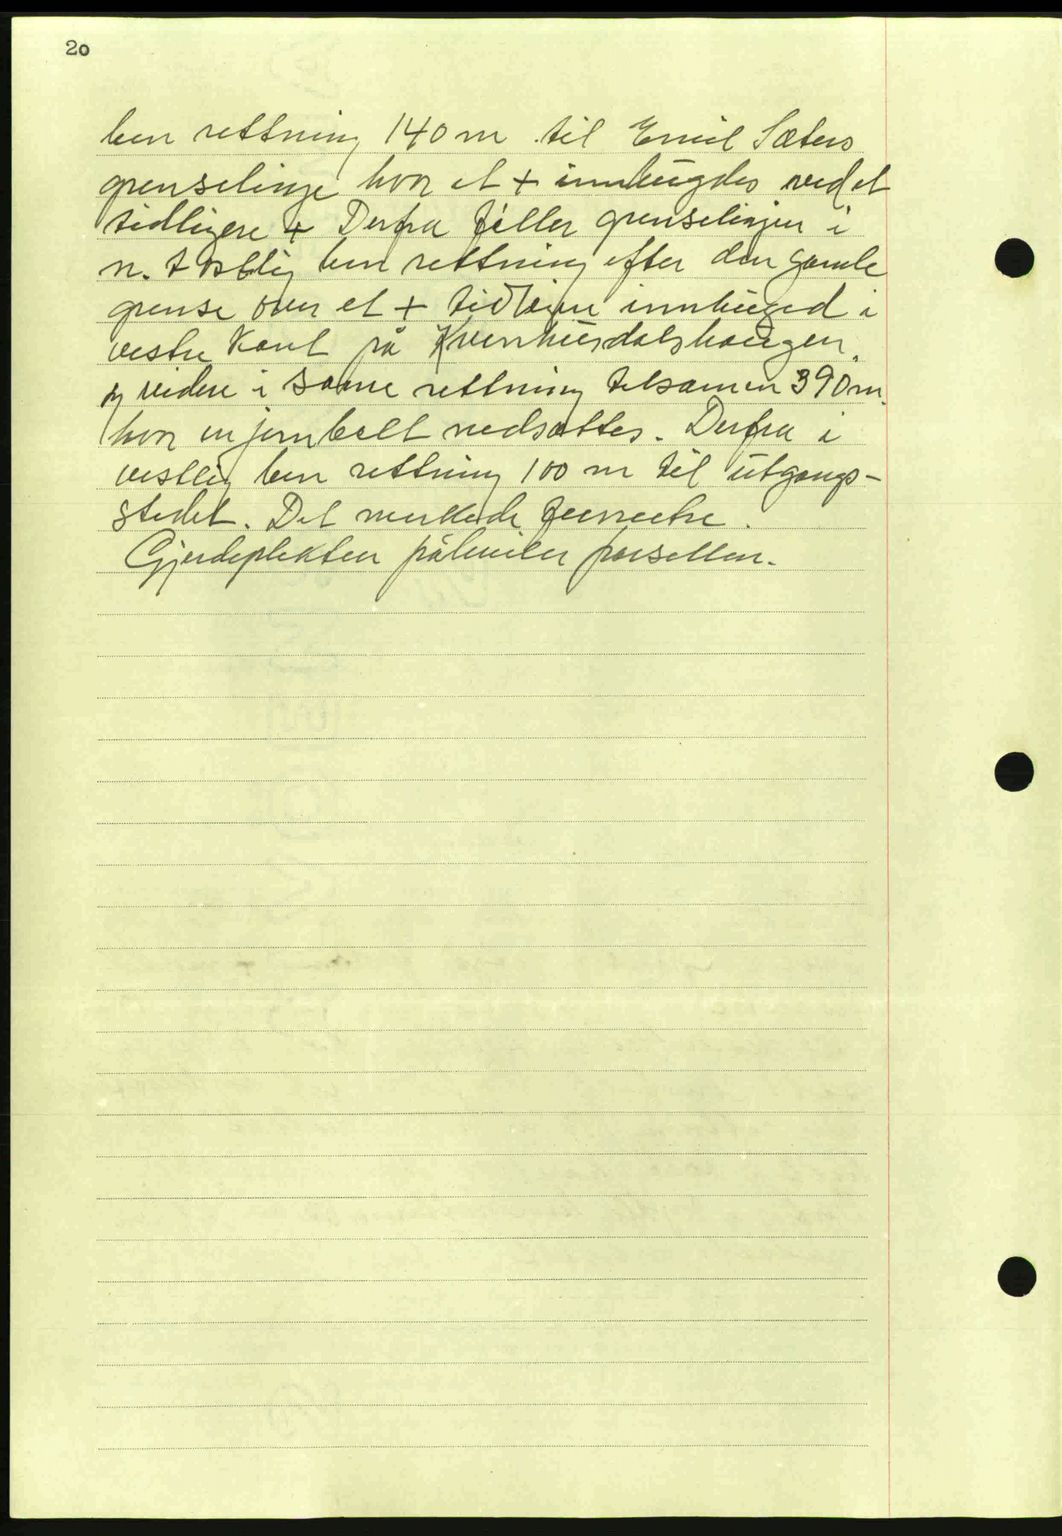 20
ben rettning 140 m til Emil Sæters
grenselinje hvor et + innhugdes ved et
tidligere + Derfra føller grenselinjen i
n. østlig ben rettning efter den gamle
grense over et + tidleigere innhuged i
vestre Kant på Kvernhusdalshaugen
og videre i same rettning tilsamen 390 m.
hvor en jernbolt nedsættes. Derfra i
vestlig ben rettning 100 m til utgangs-
stedet. Det merkede
Gjerdeplikten påhviler parsellen.